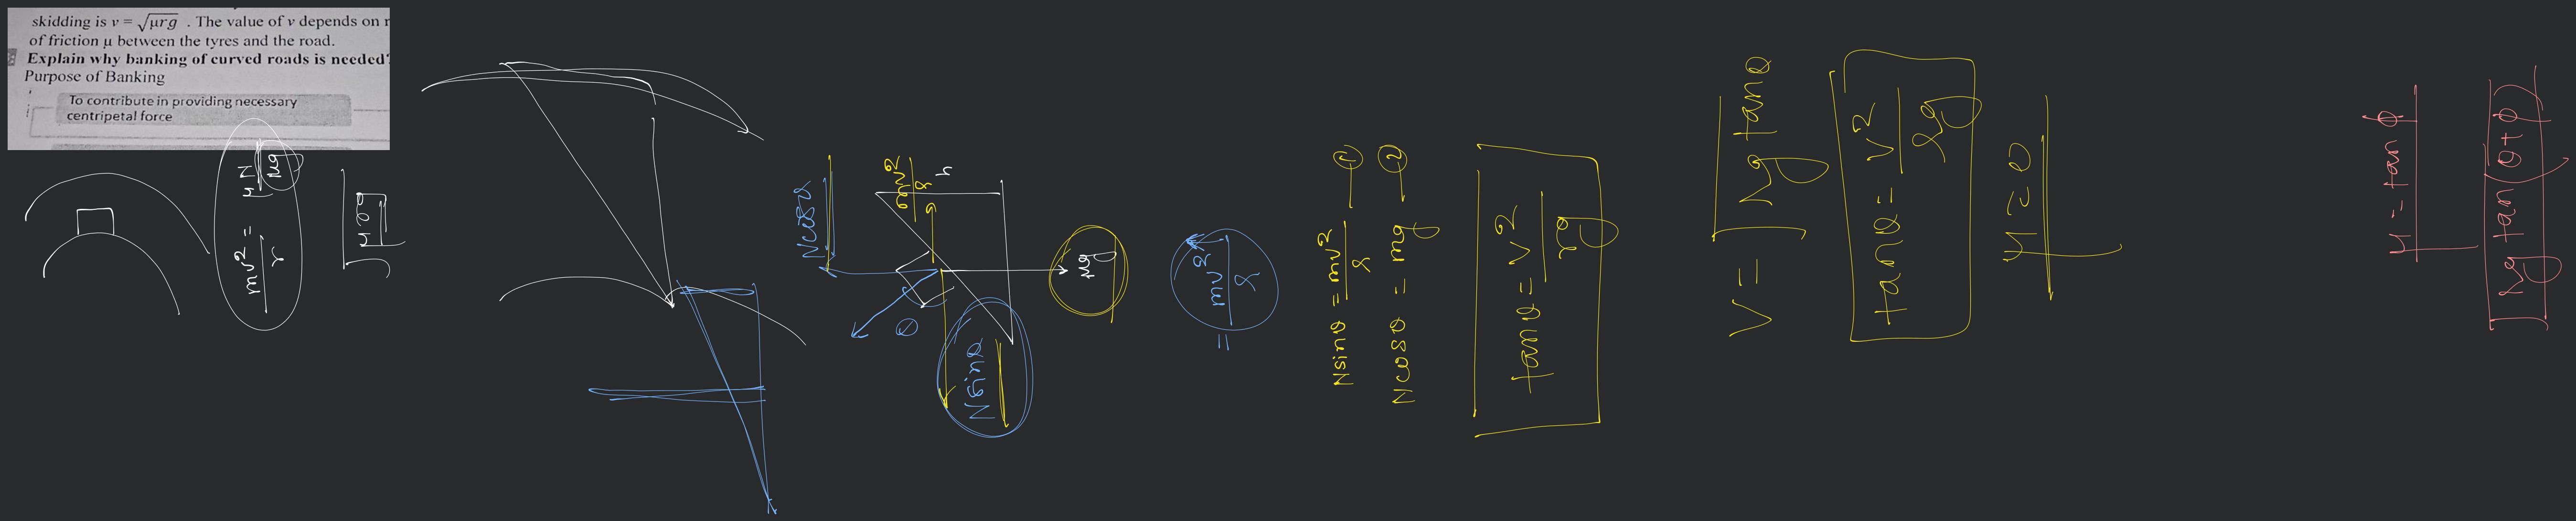 skidding is v = √μrg . The value of v depends on
of friction μ between the tyres and the road.
Explain why banking of curved roads is needed?
Purpose of Banking
To contribute in providing necessary
centripetal force
mv²/r = μN
mg
√μrg
N cosθ
mv²/r
h
θ
N sinθ
mg
mv²/r
=
N sinθ = mv²/r — ①
N cosθ = mg — ②
tanθ = v²/rg
v = √rg tanθ
tanθ = v²/rg
μ = 0
μ = tan φ
√rg tan(θ+φ)